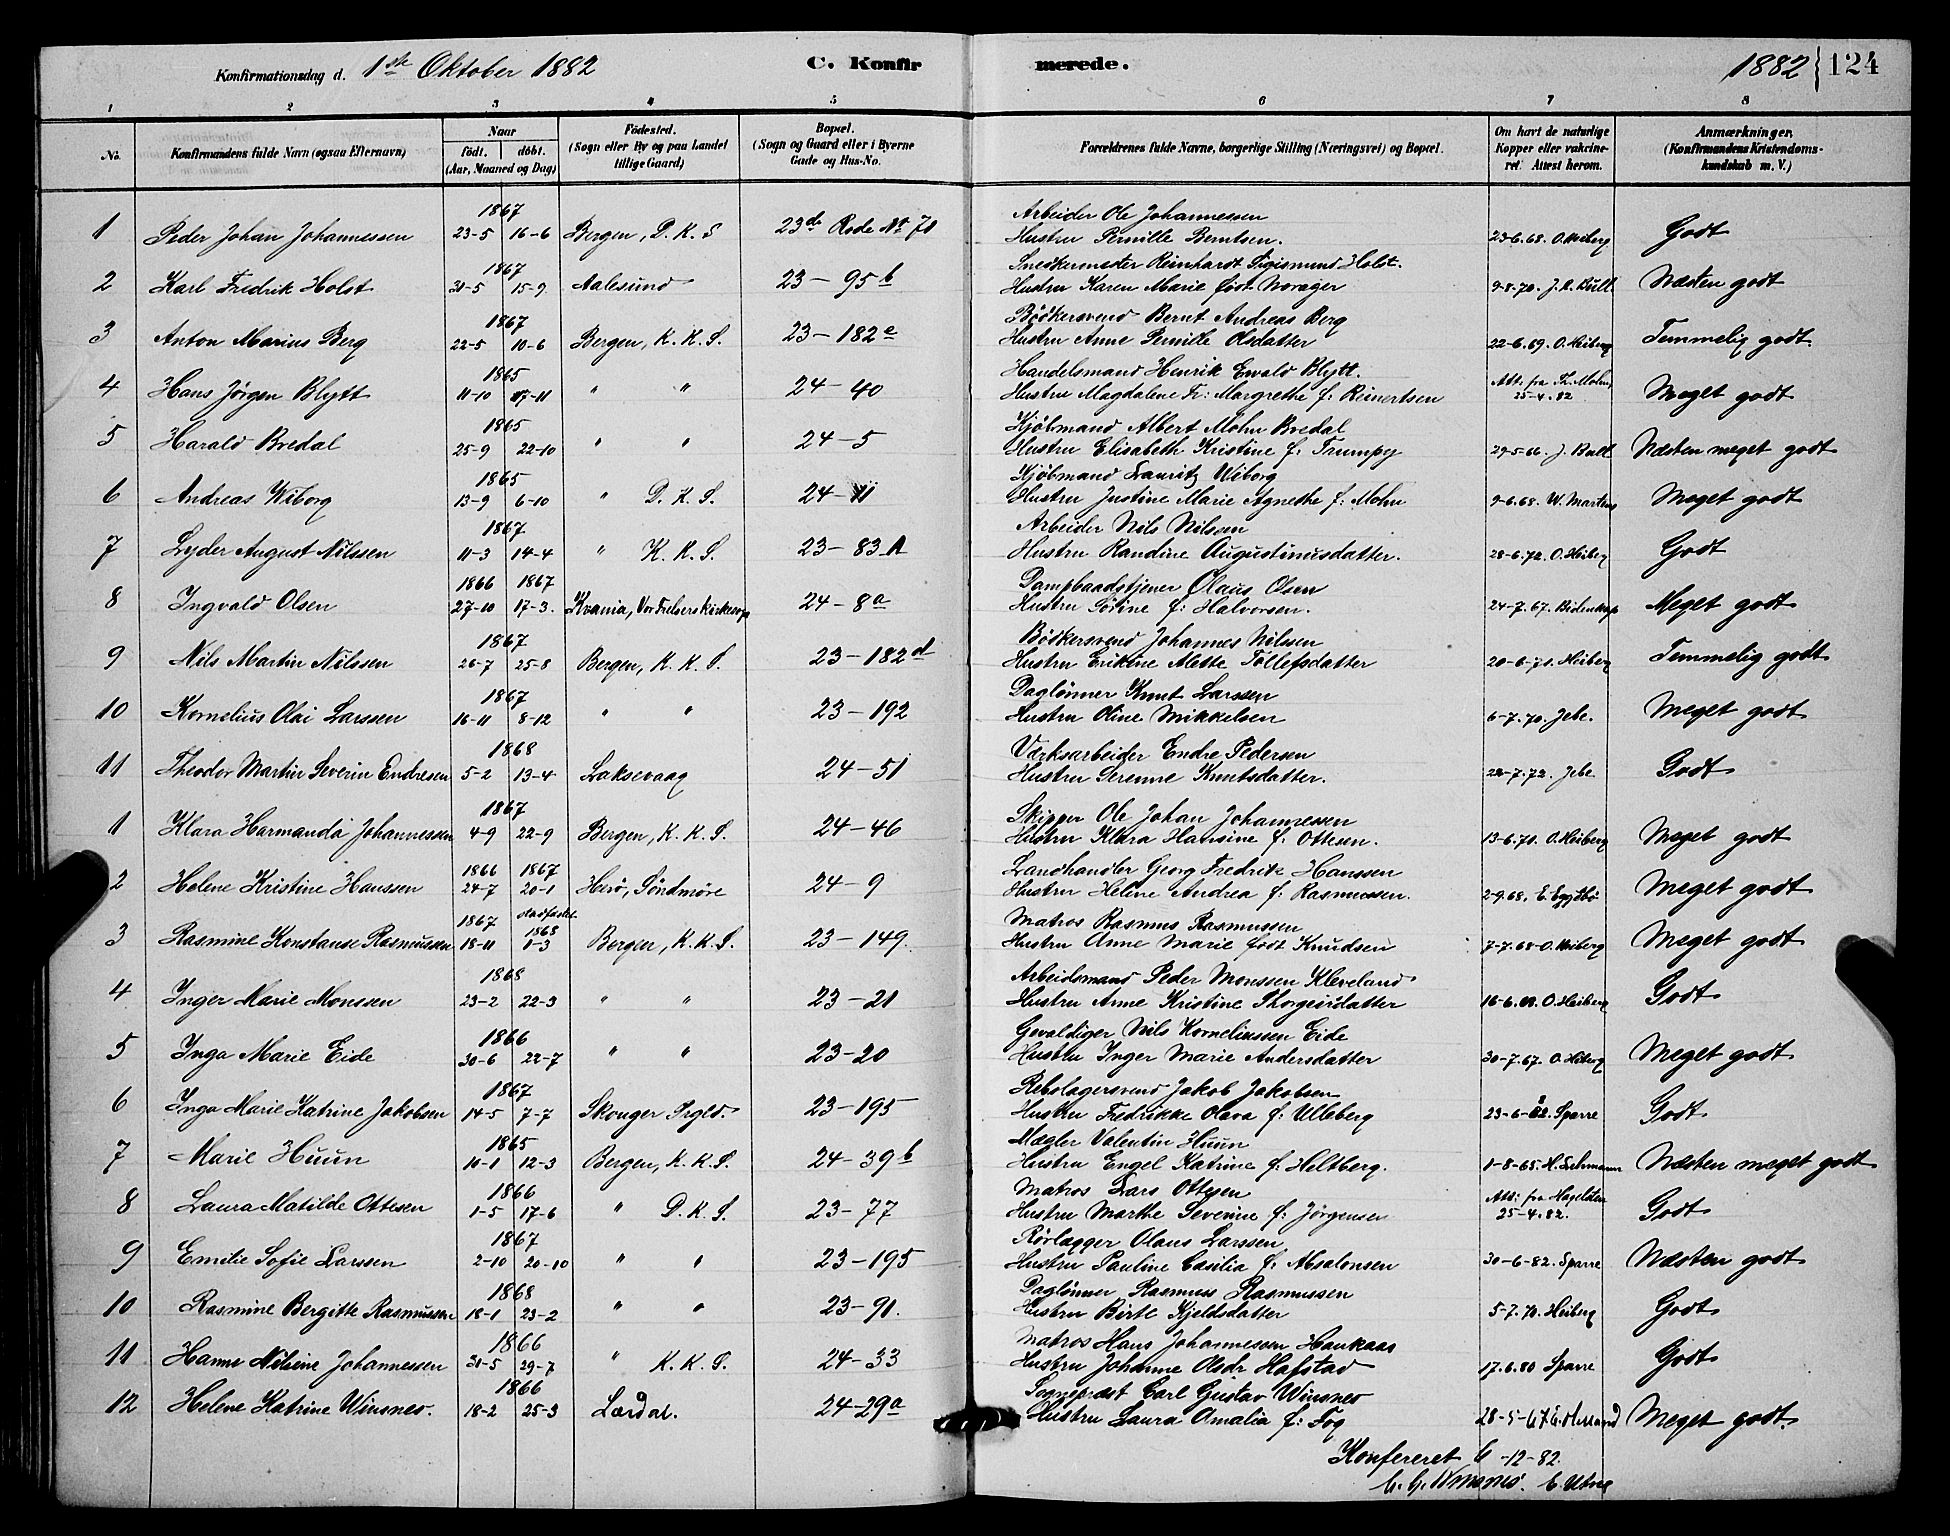 Konfirmationsdag d. 1ste Oktober 1882 C. Konfirmerede. 1882 124
1 2 3 4 5 6 7 8
No. Konfirmandens fulde Navn (ogsaa Efternavn) Naar födt. döbt. (Aar, Maaned og Dag) Födested. (Sogn eller By og paa Landet tillige Gaard) Bopæl. (Sogn og Gaard eller i Byerne Gade og Hus-No. Forældrenes fulde Navne, borgerlige Stilling (Næringsvei) og Bopæl. Om havt de naturlige Kopper eller vakcineret Attest herom. Anmærkninger. (Konfirmandens Kristendomskundskab m. V.)
1867 Arbeider Ole Johannessen
1 Peder Johan Johannessen 23-5 16-6 Bergen, D. K. S 23de Rode No 71 Hustru Pernille Berntsen. 23-6.68. O. Heiberg Godt
1867 Snedkermester Reinhardt Sigismund Holst.
2 Karl Fredrik Holst 31-5 15-9 Aalesund 23-95b Hustru Karen Marie födt Noræger 9-8.70. J. R. Bull Næsten godt
1867 Bödkersvend Bernt Andreas Berg
3 Anton Marius Berg 22-5 10-6 Bergen, K. K. S. 23-182e Hustru Anne Pernille Olsdatter 22-6.69. O. Heiberg Temmelig godt.
1865 Handelsmand Henrik Ewald Blytt.
4 Hans Jörgen Blytt 11-10 17-11 " " 24-40 Hustru Magdalene Fr: Margrethe f: Reinertsen Att. fra Th. Mohn, 25-4.82 Meget godt
1865 Kjöbmand Albert Mohn Bredal
5 Harald Bredal 25-9 22-10 " " 24-5 Hustru Elisabeth Kristine f: Trumpy 29-5.66. J. Bull Næsten meget godt
1865 Kjöbmand Lauritz Wiborg
6 Andreas Wiborg 13-9 6-10 " D. K. S. 24-11 Hustru Justine Marie Agnethe f: Mohn 9-6.68. W. Martens Meget godt
1867 Arbeider Nils Nilssen
7 Lyder August Nilssen 11-3 14-4 " K. K. S. 23-83A Hustru Randine Augustinusdatter. 28-6.72. O. Heiberg Godt
1866 1867 Dampbaadstjener Olaus Olsen
8 Ingvald Olsen 27-10 17-3. Krania, Vor Frelsers Kirkesogn 24-8a Hustru Sörine f: Halvorsen. 24-7.67. Bidenkap Meget godt
1867 Bödkersvend Johannes Nilssen
9 Nils Martin Nilssen 26-7 25-8 Bergen, K. K. S. 23-182d Hustru Erikine Mette Tollefsdatter 20-6-71. Heiberg Temmelig godt
1867 Daglönner Knut Larssen
10 Kornelius Olai Larssen 16-11 8-12 " " 23-192 Hustru Oline Mikkelsen 6-7.70. Jebe. Meget godt
1868 Værksarbeider Endre Pedersen
11 Theodor Martin Severin Endresen 5-2 13-4 Laksevaag 24-51 Hustru Serenne Knutsdatter. 22-7.72. Jebe Godt
1867 Skipper Ole Johan Johannessen
1 Klara Harmanda Johannessen 4-9 22-9 Bergen, K. K. S. 24-46 Hustru Klara Hansine f: Ottesen. 13-6.70. O. Heiberg Meget godt
1866 1867 Landhandler Georg Fredrik Hanssen
2 Helene Kristine Hanssen 24-7 20-1 Herö, Söndmöre 24-9 Hustru Helene Andrea f: Rasmussen. 2-9.68. E. Eggesbö Meget godt
1867 stadfæstet 1868 Matros Rasmus Rasmussen
3 Rasmine Konstanse Rasmussen 18-11 1-3 Bergen, K. K. S. 23-149. Hustru Anne Marie födt Knudsen 7-7.68. O. Heiberg Meget godt
1868 Arbeidsmand Peder Monssen Kleveland
4 Inger Marie Monssen 23-2 22-3 " " 23-21 Hustru Anne Kristine Thorgeirsdatter 16-6.69. O. Heiberg Godt
1866 Gevaldiger Nils Korneliussen Eide
5 Inga Marie Eide 30-6 22-7 " " 23-20 Hustru Inger Marie Andersdatter 30-7.67. O. Heiberg Meget godt
1867 Rebslagersvend Jakob Jakobsen
6 Inga Marie Katrine Jakobsen 14-5 7-7 Skouger Prgld. 23-195 Hustru Fredrikke Olava f: Ulleberg 23-6-82. Sparre Godt
1865 Mægler Valentin Huun
7 Marie Huun 10-1 12-3 Bergen, K. K. S. 24-39b Hustru Engel Katrine f: Heltberg. 1-8-65. H. Lehmann Næsten meget godt
1866 Matros Lars Ottesen
8 Laura Matilde Ottesen 1-5 17-6 " D. K. S. 23-77 Hustru Marthe Severine f: Jörgensen Att: fra 25-4.82. Godt
1867 Rörlægger Olaus Larssen
9 Emilie Sofie Larssen 2-10 20-10 " " 23-195 Hustru Pauline Cæcilia f: Absalonsen 30-6-82. Sparre Næsten godt
1868 Daglönner Rasmus Rasmussen
10 Rasmine Bergitte Rasmussen 18-1 23-2 " " 23-91. Hustru Birte Kjeldsdatter 5-7.70. Heiberg Godt
1866 Matros Hans Johannessen Haukaas
11 Hanne Nilsine Johannessen 31-5 29-7 " K. K. S. 24-33 Hustru Johanne Olsdr Hafstad 17.6.80 Sparre Godt
1866 Sognepræst Carl Gustav Winsnes
12 Helene Katrine Winsnes. 18-2 25-3 Lærdal. 24-29a Hustru Laura Amalia f: Fog 28-5-67. Meget godt.
Konfereret 6-12-82.
C. G. Winsnes. E. Utne